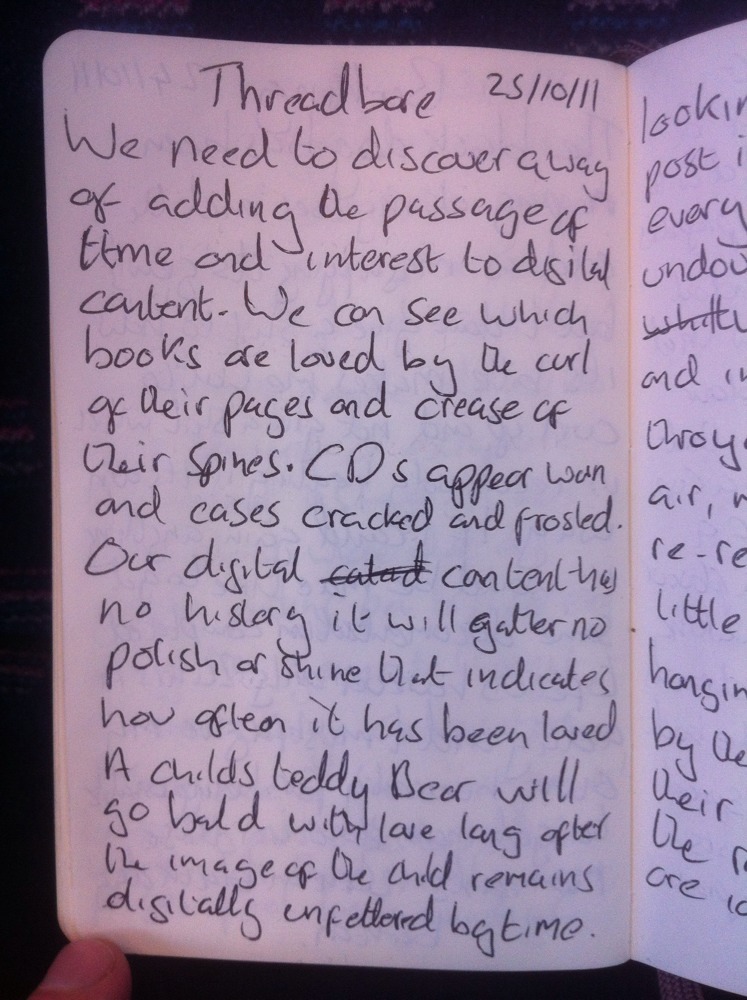 Threadbare 25/10/11
We need to discover a way
of adding the passage of
time and interest to digital
content. We can see which
books are loved by the curl
of their pages and crease of
their spines. CDs appear worn
and cases cracked and frosted.
Our digital content has
no history it will gather no
polish or shine that indicates
how often it has been loved
A childs teddy Bear will
go bald with love long after
the image of the child remains
digitally unfettered by time.
lookin
post i
every
undou
and in
throug
air, 
re-re
little
hangin
by the
their
the
are